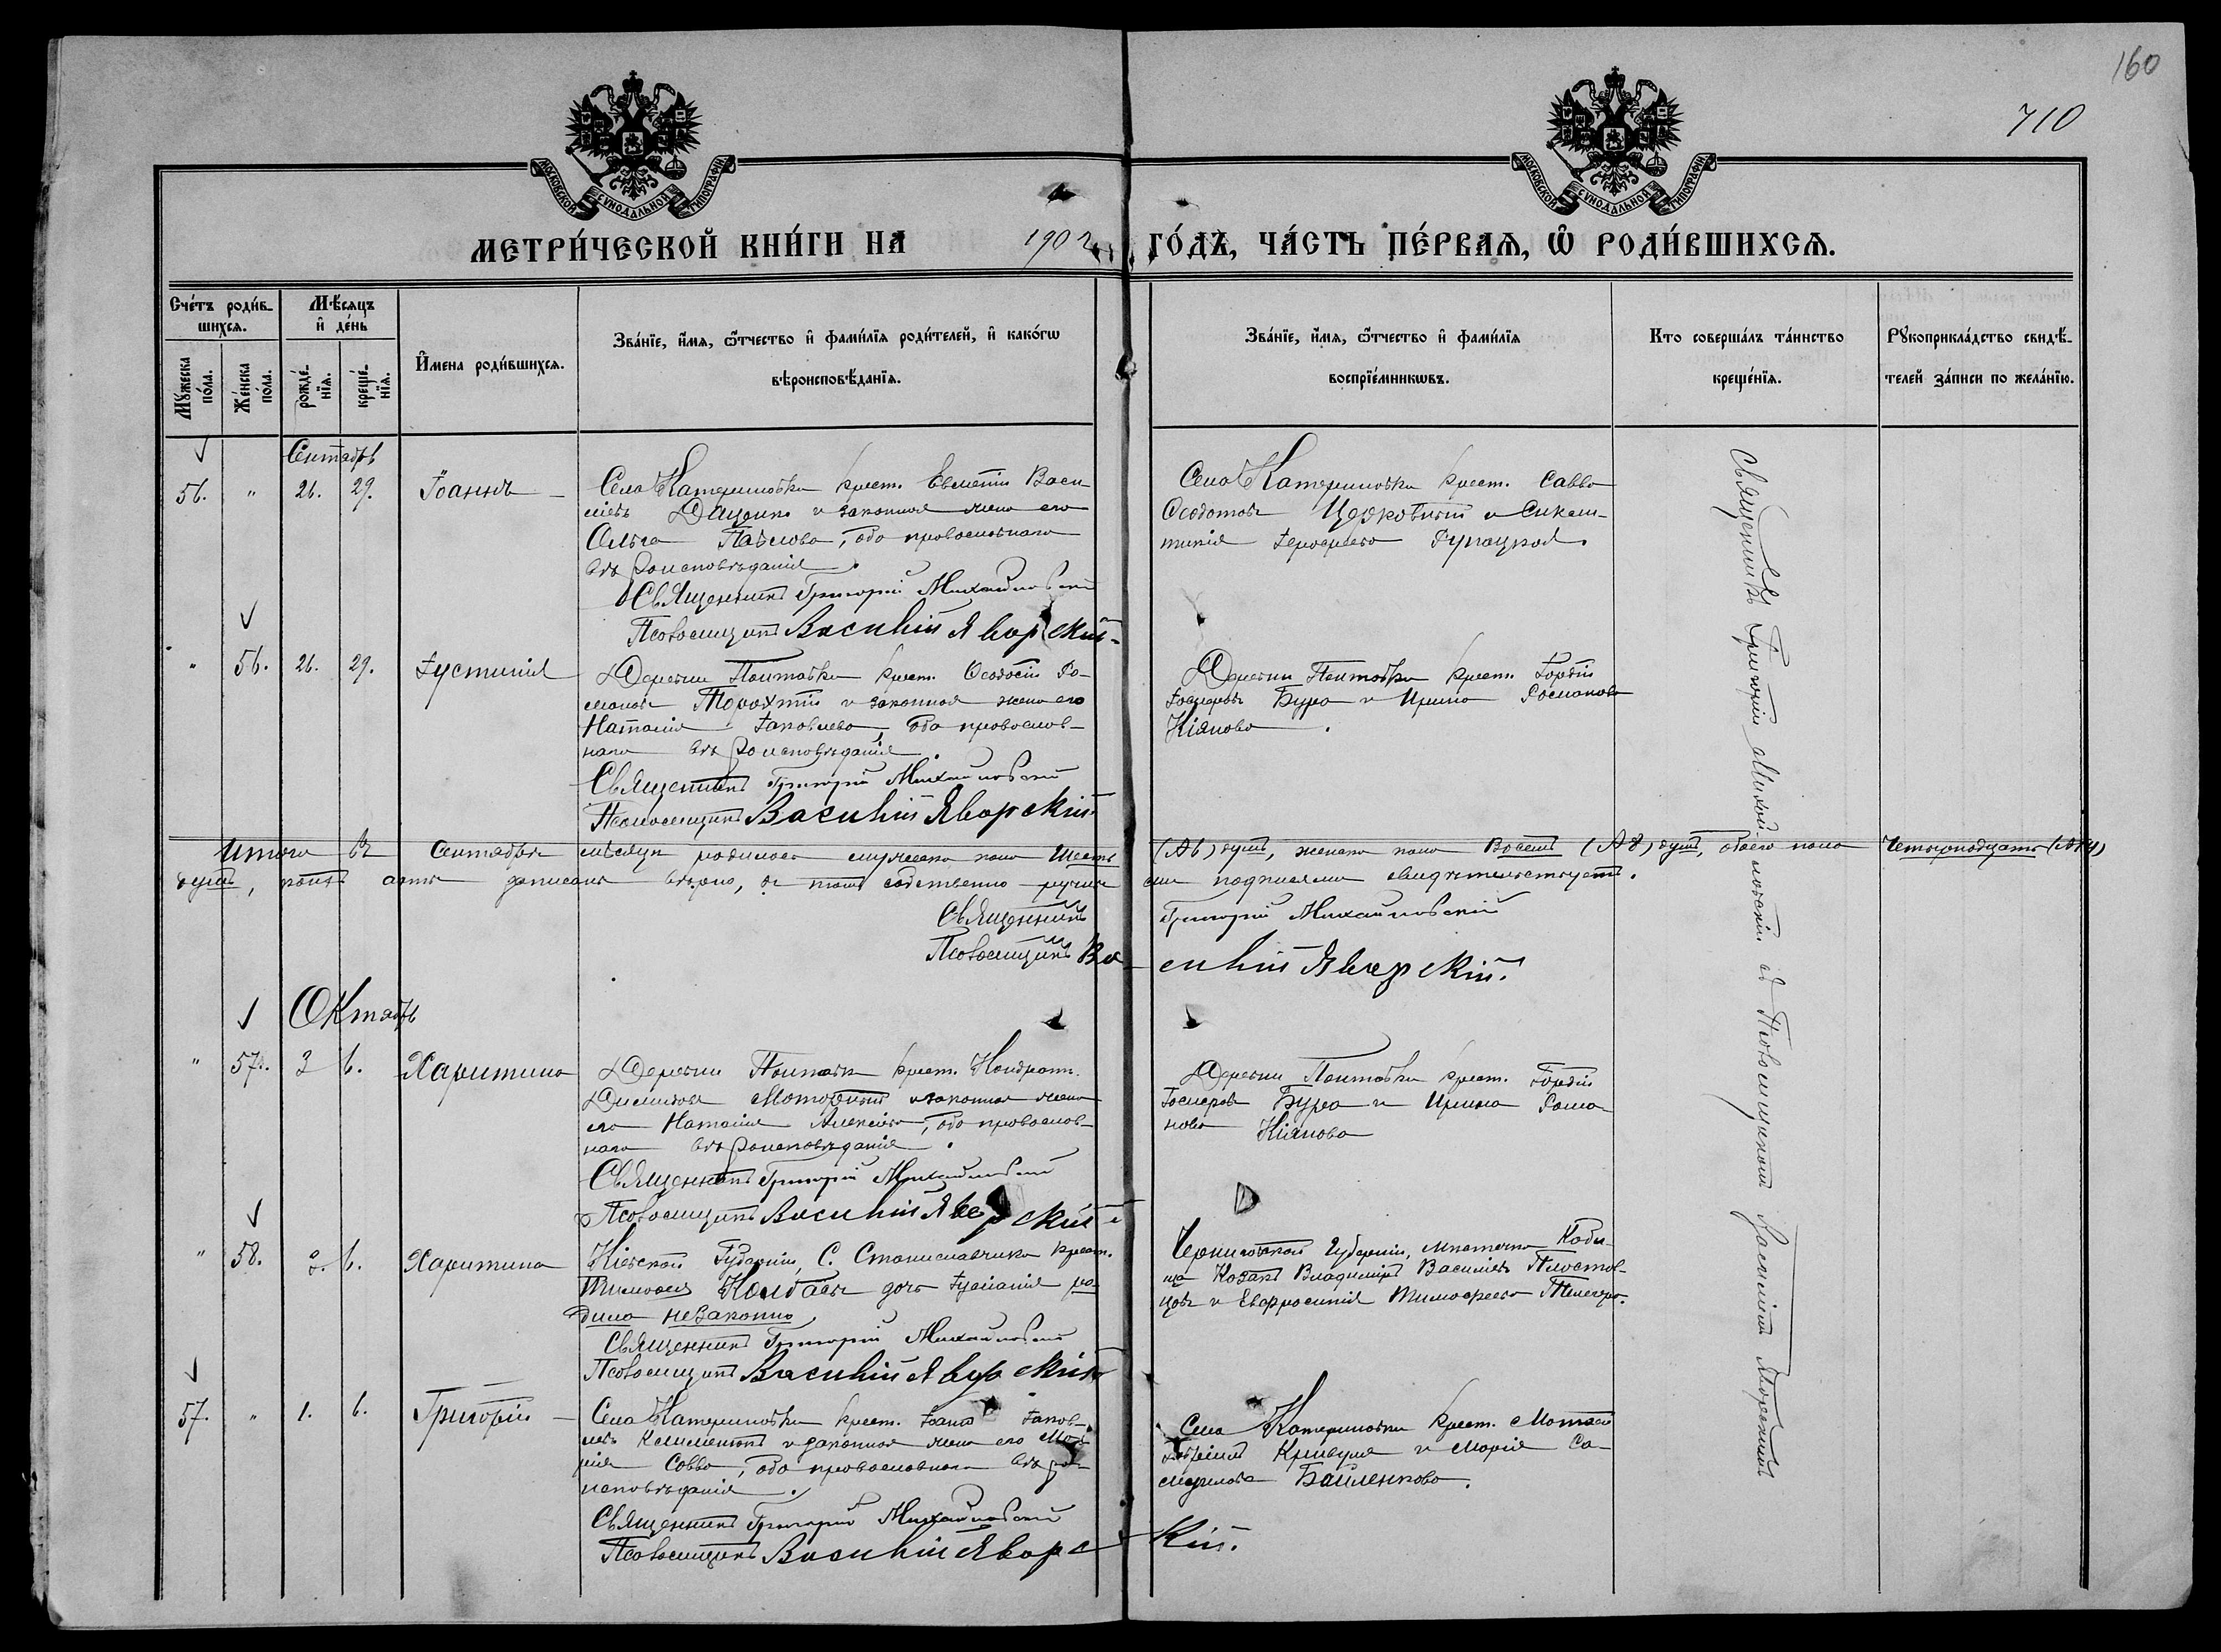 160
710
МОСКОВСКОЙ СѴНОДАЛЬНОЙ ТИПОГРАФІИ
МОСКОВСКОЙ СѴНОДАЛЬНОЙ ТИПОГРАФІИ
МЕТРИ́ЧЕСКОЙ КНИ́ГИ НА 1902 ГО́ДЪ, ЧА́СТЬ ПЕ́РВАЯ, Ѡ҆ РОДИ́ВШИХСЯ.
Сче́тъ роди́в-
шихся.
Мꙋ́жеска по́ла.
Же́нска по́ла.
Мѣ́сяцъ
и҆ де́нь
рожде́-нїя.
креще́-нїя.
И҆мена роди́вшихся.
Зва́нїе, и҆́мя, ѻ҆́тчество и҆ фами́лїя роди́телей, и҆ како́гѡ
вѣроисповѣ́данїя.
Зва́нїе, и҆́мя, ѻ҆́тчество и҆ фами́лїя
воспрїе́мникѡвъ.
Кто соверша́лъ та́инство
креще́нїя.
Рꙋкоприкла́дство свидѣ́-
телей за́писи по жела́нїю.
Сентябрь
56. " 26. 29. Іоаннъ
Села Катериновки крест. Евменій Васи-
ліевъ и законная жена его
Ольга Павлова, оба православнаго
вѣроисповѣданія.
Священникъ Григорій Михайловскій
Псаломщикъ Василій Яворскій
Села Катериновки крест. Савва
Ѳеодотовъ и Синкли-
тикія
" 56. 26. 29. Іустинія
Деревни крест. Ѳеодосій Ро-
мановъ и законная жена его
Наталія Іаковлева, оба православ-
наго вѣроисповѣданія.
Священникъ Григорій Михайловскій
Псаломщикъ Василій Яворскій
Деревни крест. Гордій
Бура и Ирина Романова
Кіянова.
Итого въ Сентябрѣ мѣсяцѣ родилось мужеска пола Шесть
(6) душъ, женска пола Восемь (8) душъ, обоего пола Четырнадцать (14)
душъ, записаны вѣрно, въ томъ собственно-ручно
подписями свидѣтельствуемъ.
Священникъ Григорій Михайловскій
Псаломщикъ Василій Яворскій.
Октябрь
" 57. 3 6. Харитина
Деревни крест. Кондратъ
и законная жена
его Наталія Алексіева, оба православ-
наго вѣроисповѣданія.
Священникъ Григорій Михайловскій
Псаломщикъ Василій Яворскій
Деревни крест. Гордій
Бура и Ирина Рома-
нова Кіянова
" 58. 6. Харитина
Кіевской Губерніи, С. Станиславчика крест.
Тимоѳея дочь Іуліанія ро-
дила незаконно
Священникъ Григорій Михайловскій
Псаломщикъ Василій Яворскій
Черниговской Губерніи, мѣстечка Коби-
жча Козакъ Владиміръ Василіевъ
и Евфросинія Тимофеева
57. " 1. 6. Григорій
Села Катериновки крест. Іоаннъ Іаков-
левъ и законная жена его Ма-
рія Савва, оба православнаго вѣро-
исповѣданія.
Священникъ Григорій Михайловскій
Псаломщикъ Василій Яворскій.
Села Катериновки крест.
и Марія Са-
муилова Байленкова.
Священникъ Григорій Михайловскій съ Псаломщикомъ Василіемъ Яворскимъ